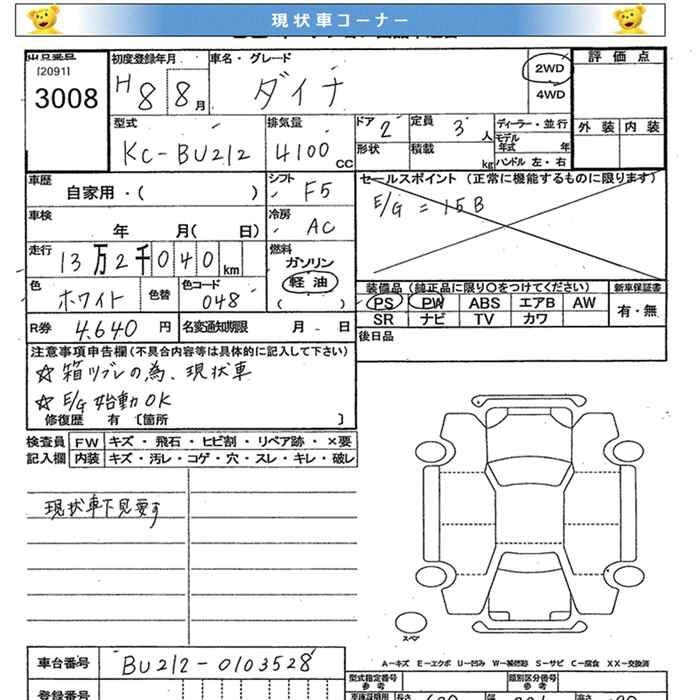 現状車コーナー
[2091]
3008
初度登録年月
H 8 8 月
車名・グレード
ダイナ
2WD
4WD
評価点
外装 内装
型式
KC-BU212
排気量
4100 CC
ドア 2
定員 3 人
形状
積載 kg
ディーラー・並行
モデル年式 年
ハンドル 左・右
車歴
自家用・( )
シフト F5
セールスポイント (正常に機能するものに限ります)
E/G = 15B
車検
年 月( 日)
冷房 AC
走行
13万2千040km
燃料
ガソリン
軽油
( )
色 ホワイト
色替
色コード 048
装備品 (純正品に限り○をつけてください)
PS PW ABS エアB AW
SR ナビ TV カワ
新車保証書
有・無
R券 4,640 円
名変通知期限 月 日
後日品
注意事項申告欄(不具合内容等は具体的に記入して下さい)
☆箱ツブレの為、現状車
☆ E/G 始動OK
修復歴 有 〔箇所 〕
検査員 FW キズ・飛石・ヒビ割・リペア跡・×要
記入欄 内装 キズ・汚レ・コゲ・穴・スレ・キレ・破レ
現状車下見要す
スペア
車台番号 BU212-0103528
A-キズ E-エクボ U-凹み W-補修跡 S-サビ C-腐食 XX-交換済
登録番号
型式指定番号
参考
類別区分番号
参考